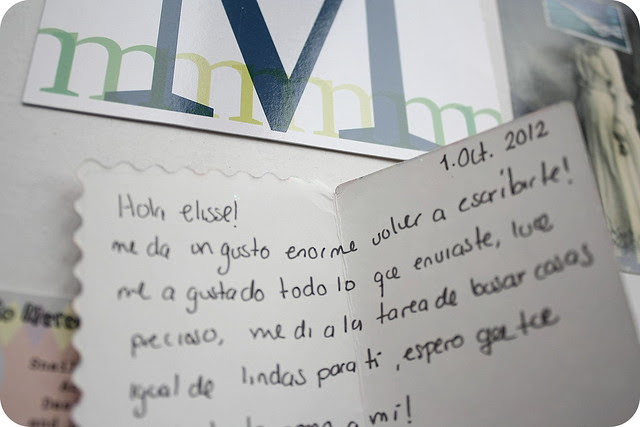 M
mmmmm
1. Oct. 2012
Hola elisse!
me da un gusto enorme volver a escribirte!
me a gustado todo lo que enviaste, luce
precioso, me di a la tarea de busar cosas
igual de lindas para ti, espero que tce
a mi!